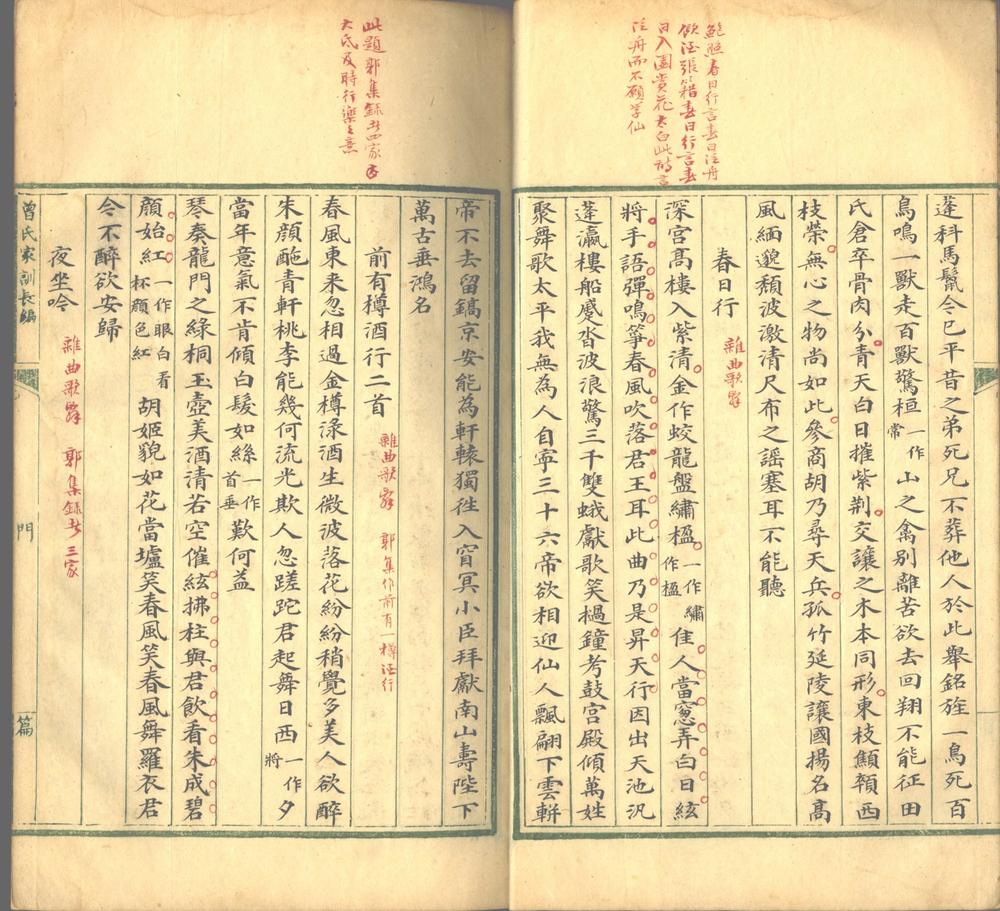 鮑照春日行言春日泛舟
飲酒張籍春日行言春
日入園賞花太白此詩言
泛舟而不願學仙
蓬科馬鬣今已平昔之弟死兄不葬他人於此舉銘旌一鳥死百
鳥鳴一獸走百獸驚桓一作常山之禽別離苦欲去回翔不能征田
氏倉卒骨肉分青天白日摧紫荆交讓之木本同形東枝顦顇西
枝榮無心之物尚如此參商胡乃尋天兵孤竹延陵讓國揚名高
風緬邈頹波激清尺布之謡塞耳不能聽
春日行 雜曲歌辭
深宮髙樓入紫清金作蛟龍盤繡楹一作繡作楹佳人當窻弄白日絃
將手語彈鳴箏春風吹落君王耳此曲乃是昇天行因出天池汎
蓬瀛樓船蹙沓波浪驚三千雙蛾獻歌笑撾鐘考鼓宮殿傾萬姓
聚舞歌太平我無為人自寧三十六帝欲相迎仙人飄翩下雲軿
此題郭集錄共四家
大氐及時行樂之意
帝不去留鎬京安能為軒轅獨徃入窅冥小臣拜獻南山壽陛下
萬古垂鴻名
前有樽酒行二首 雜曲歌辭 郭集作前有一樽酒行
春風東来忽相過金樽淥酒生微波落花紛紛稍覺多美人欲醉
朱顔酡青軒桃李能幾何流光欺人忽蹉跎君起舞日西一作夕將
當年意氣不肯傾白髮如絲一作首垂歎何益
琴奏龍門之綠桐玉壺美酒清若空催絃拂柱與君飲看朱成碧
顔始紅一作眼白看杯顔色紅胡姬貌如花當壚笑春風笑春風舞羅衣君
今不醉欲安歸
夜坐吟 雜曲歌辭 郭集錄共三家
曾氏家訓長編
門
篇